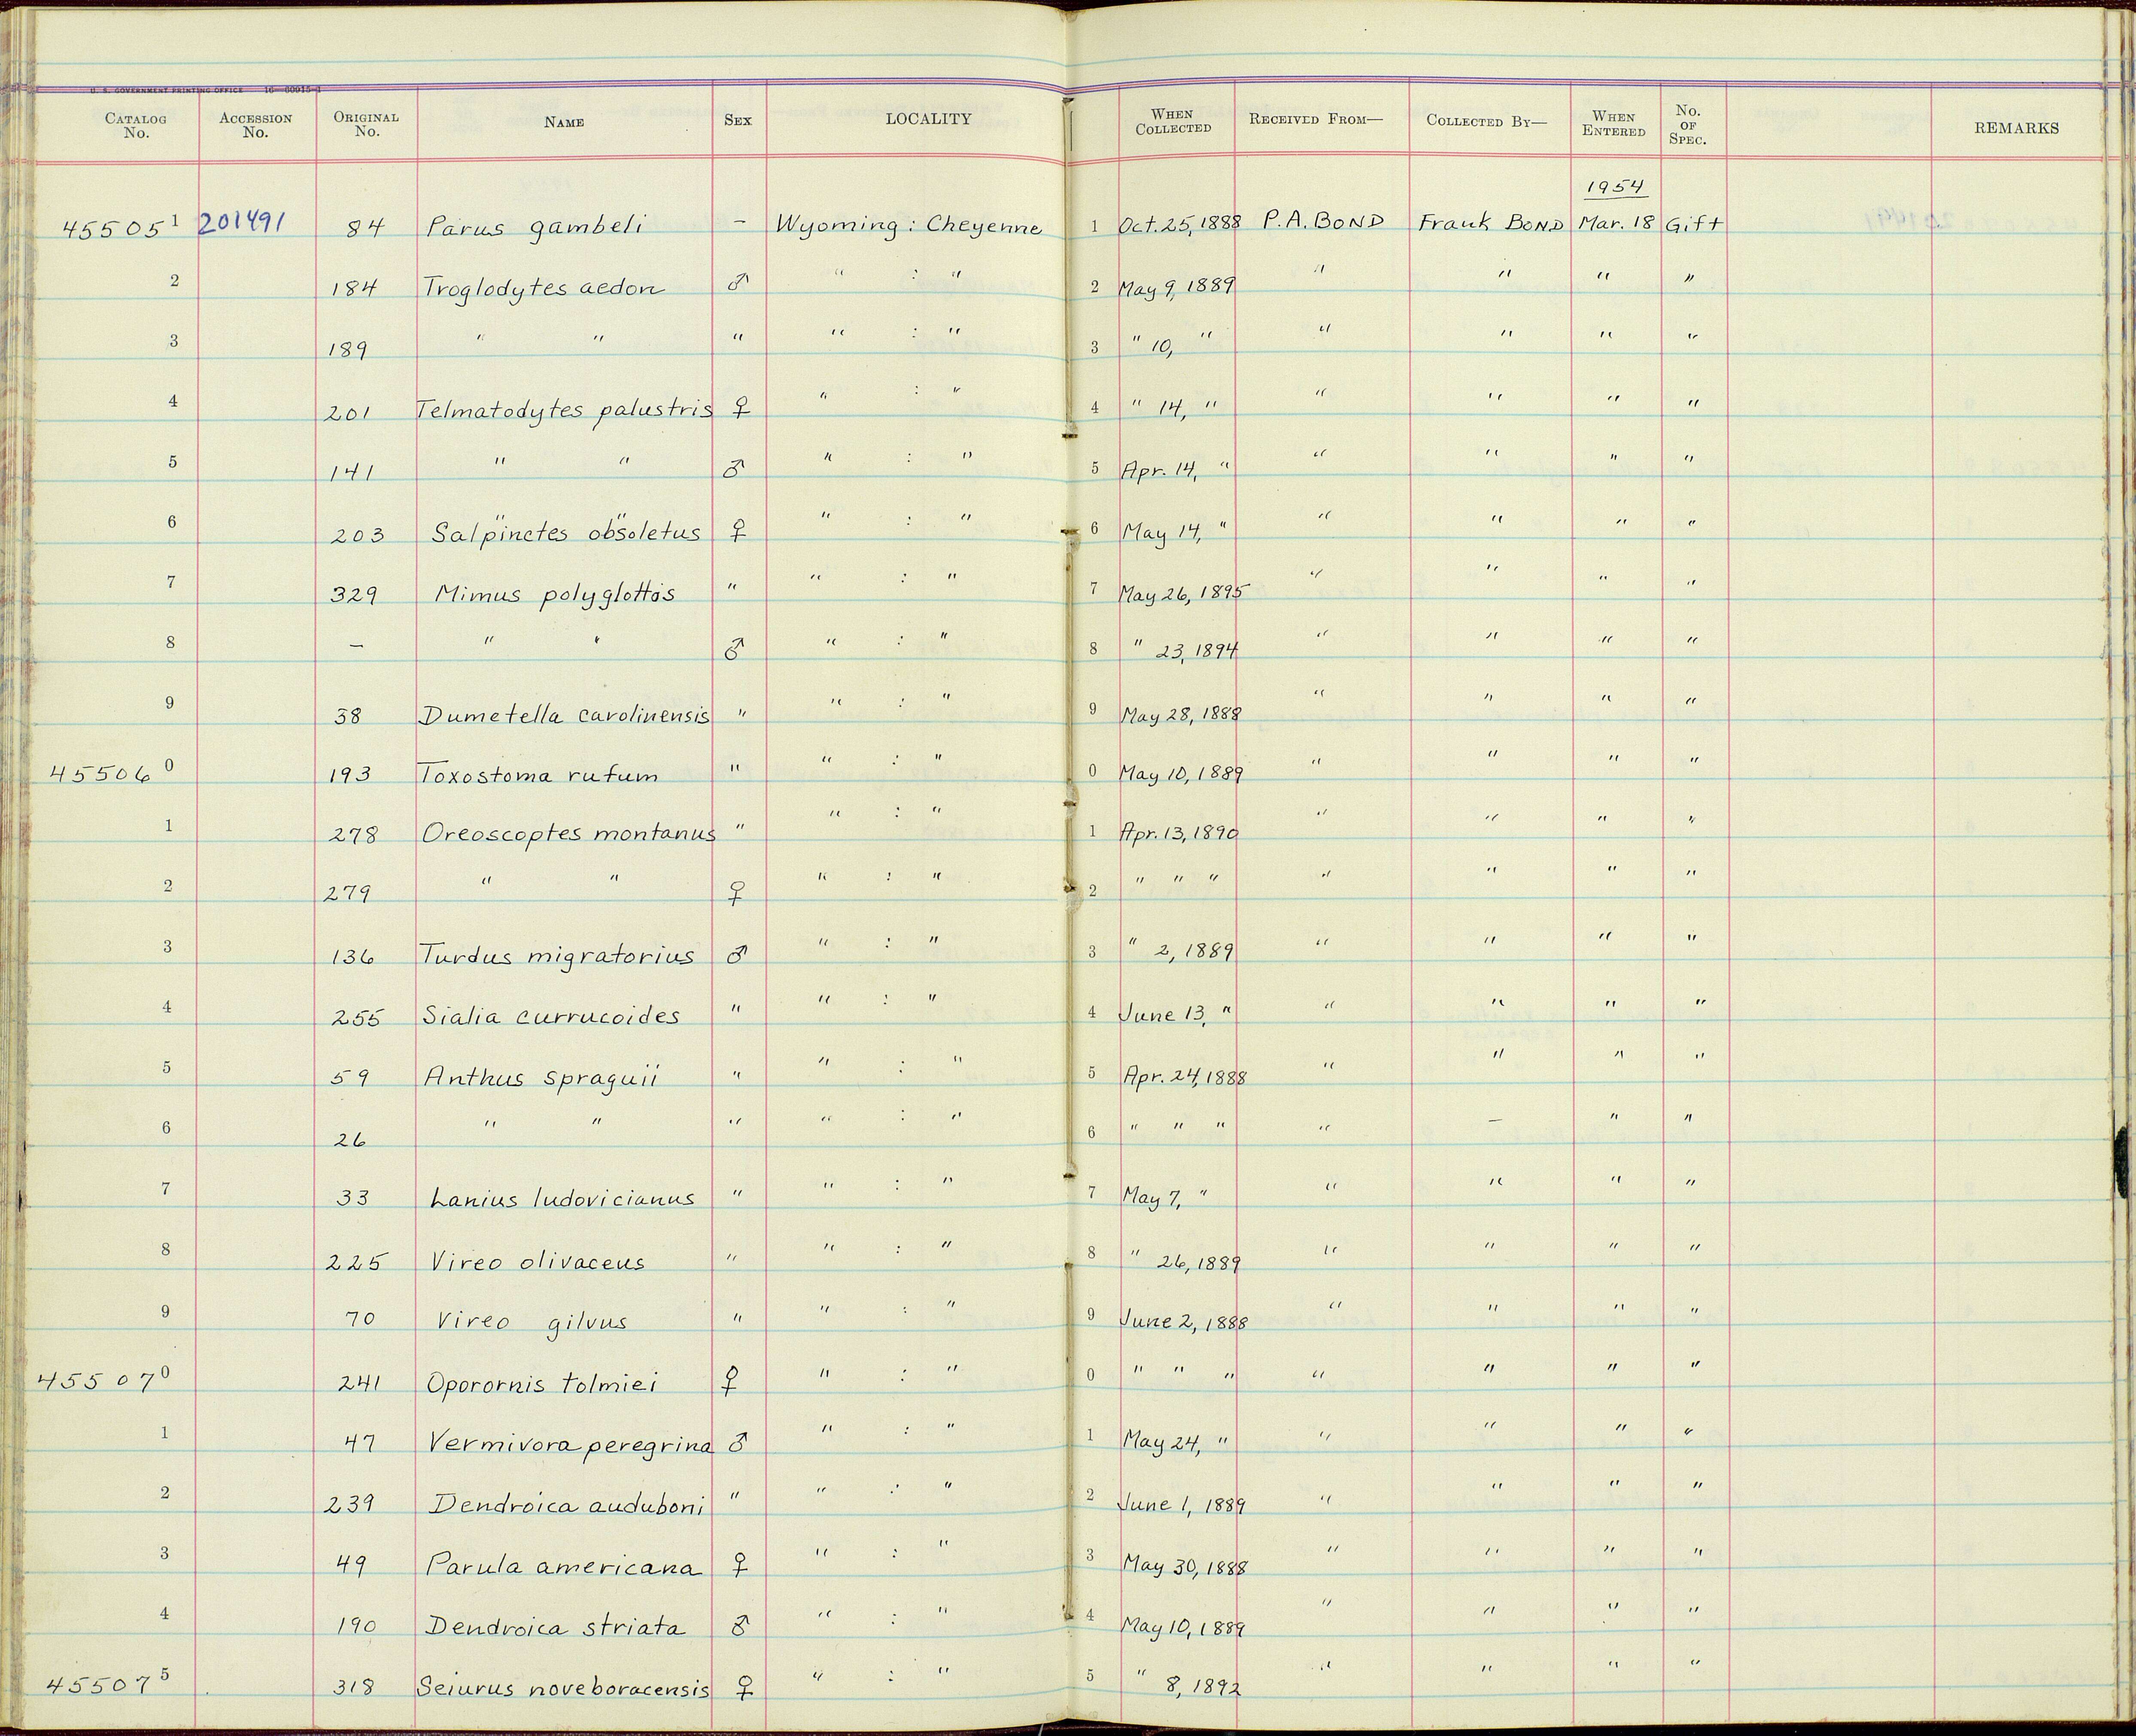 U. S. GOVERNMENT PRINTING OFFICE 16—60915-1
CATALOG No. ACCESSION No. ORIGINAL No. NAME SEX LOCALITY WHEN COLLECTED RECEIVED FROM— COLLECTED BY— WHEN ENTERED No. OF SPEC. REMARKS
1954
455051 201491 84 Parus gambeli – Wyoming : Cheyenne 1 Oct. 25, 1888 P.A. BOND Frank BOND Mar. 18 Gift
2 184 Troglodytes aedon ♂ " : " 2 May 9, 1889 " " " "
3 189 " " " " : " 3 " 10, " " " " "
4 201 Telmatodytes palustris ♀ " : " 4 " 14, " " " " "
5 141 " " ♂ " : " 5 Apr. 14, " " " " "
6 203 Salpinctes obsoletus ♀ " : " 6 May 14, " " " " "
7 329 Mimus polyglottos " " : " 7 May 26, 1895 " " " "
8 – " " ♂ " : " 8 " 23, 1894 " " " "
9 38 Dumetella carolinensis " " : " 9 May 28, 1888 " " " "
455060 193 Toxostoma rufum " " : " 0 May 10, 1889 " " " "
1 278 Oreoscoptes montanus " " : " 1 Apr. 13, 1890 " " " "
2 279 " " ♀ " : " 2 " " " " " " "
3 136 Turdus migratorius ♂ " : " 3 " 2, 1889 " " " "
4 255 Sialia currucoides " " : " 4 June 13, " " " " "
5 59 Anthus spraguii " " : " 5 Apr. 24, 1888 " " " "
6 26 " " " " : " 6 " " " " – " "
7 33 Lanius ludovicianus " " : " 7 May 7, " " " " "
8 225 Vireo olivaceus " " : " 8 " 26, 1889 " " " "
9 70 Vireo gilvus " " : " 9 June 2, 1888 " " " "
455070 241 Oporornis tolmiei ♀ " : " 0 " " " " " " "
1 47 Vermivora peregrina ♂ " : " 1 May 24, " " " " "
2 239 Dendroica auduboni " " : " 2 June 1, 1889 " " " "
3 49 Parula americana ♀ " : " 3 May 30, 1888 " " " "
4 190 Dendroica striata ♂ " : " 4 May 10, 1889 " " " "
455075 318 Seiurus noveboracensis ♀ " : " 5 " 8, 1892 " " " "